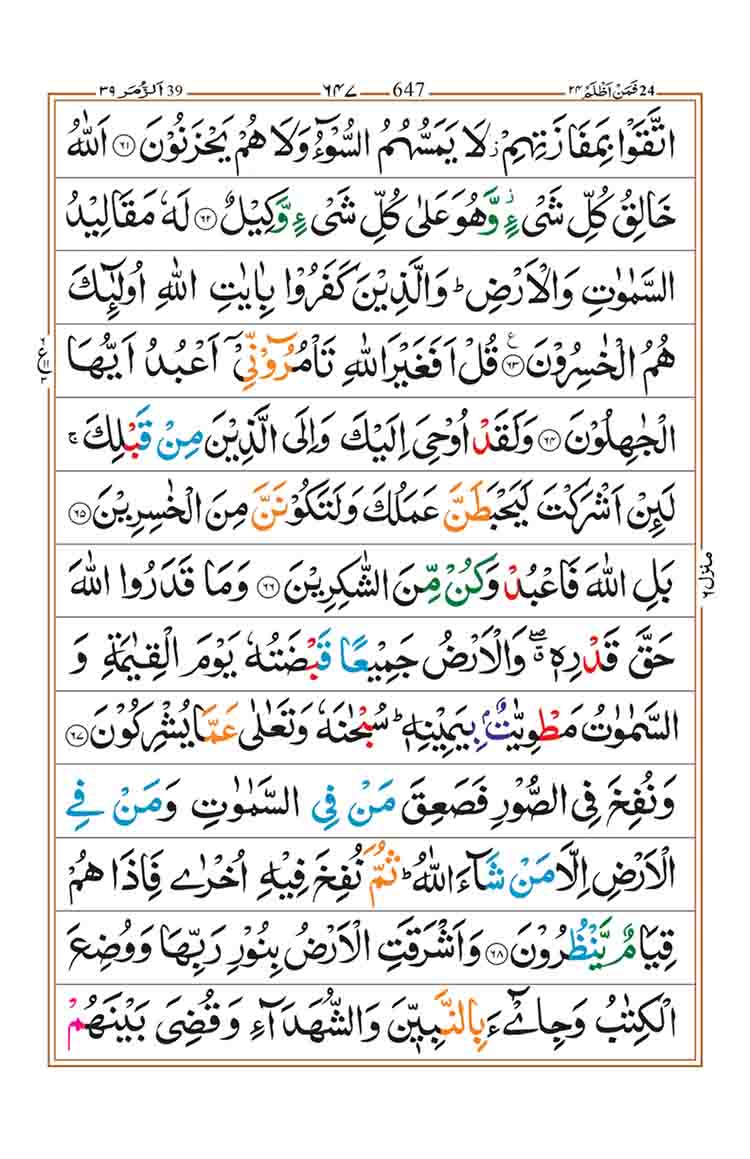 اَلزُّمَر ٣٩ 39 ٦٤٧ 647 فَمَنْ اَظْلَمُ ٢٤ 24
اتَّقَوْا بِمَفَازَتِهِمْ ز لَا يَمَسُّهُمُ السُّوْٓءُ وَلَا هُمْ يَحْزَنُوْنَ ۝٦١ اَللّٰهُ
خَالِقُ كُلِّ شَیْءٍ ز وَّهُوَ عَلٰى كُلِّ شَیْءٍ وَّكِيْلٌ ۝٦٢ لَهٗ مَقَالِيْدُ
السَّمٰوٰتِ وَالْاَرْضِ ؕ وَالَّذِيْنَ كَفَرُوْا بِاٰيٰتِ اللّٰهِ اُولٰٓئِكَ
هُمُ الْخٰسِرُوْنَ ۝٦٣ ع قُلْ اَفَغَيْرَ اللّٰهِ تَاْمُرُوْٓنِّیْٓ اَعْبُدُ اَيُّهَا
الْجٰهِلُوْنَ ۝٦٤ وَلَقَدْ اُوْحِیَ اِلَيْكَ وَاِلَى الَّذِيْنَ مِنْ قَبْلِكَ ج
لَئِنْ اَشْرَكْتَ لَيَحْبَطَنَّ عَمَلُكَ وَلَتَكُوْنَنَّ مِنَ الْخٰسِرِيْنَ ۝٦٥
بَلِ اللّٰهَ فَاعْبُدْ وَكُنْ مِّنَ الشّٰكِرِيْنَ ۝٦٦ وَمَا قَدَرُوا اللّٰهَ
حَقَّ قَدْرِهٖ ۖق وَالْاَرْضُ جَمِيْعًا قَبْضَتُهٗ يَوْمَ الْقِيٰمَةِ وَ
السَّمٰوٰتُ مَطْوِيّٰتٌۢ بِيَمِيْنِهٖ ؕ سُبْحٰنَهٗ وَتَعٰلٰى عَمَّا يُشْرِكُوْنَ ۝٦٧
وَنُفِخَ فِی الصُّوْرِ فَصَعِقَ مَنْ فِی السَّمٰوٰتِ وَمَنْ فِی
الْاَرْضِ اِلَّا مَنْ شَآءَ اللّٰهُ ؕ ثُمَّ نُفِخَ فِيْهِ اُخْرٰى فَاِذَا هُمْ
قِيَامٌ يَّنْظُرُوْنَ ۝٦٨ وَاَشْرَقَتِ الْاَرْضُ بِنُوْرِ رَبِّهَا وَوُضِعَ
الْكِتٰبُ وَجِایْٓءَ بِالنَّبِيّٖنَ وَالشُّهَدَآءِ وَقُضِیَ بَيْنَهُمْ
منزل ٦